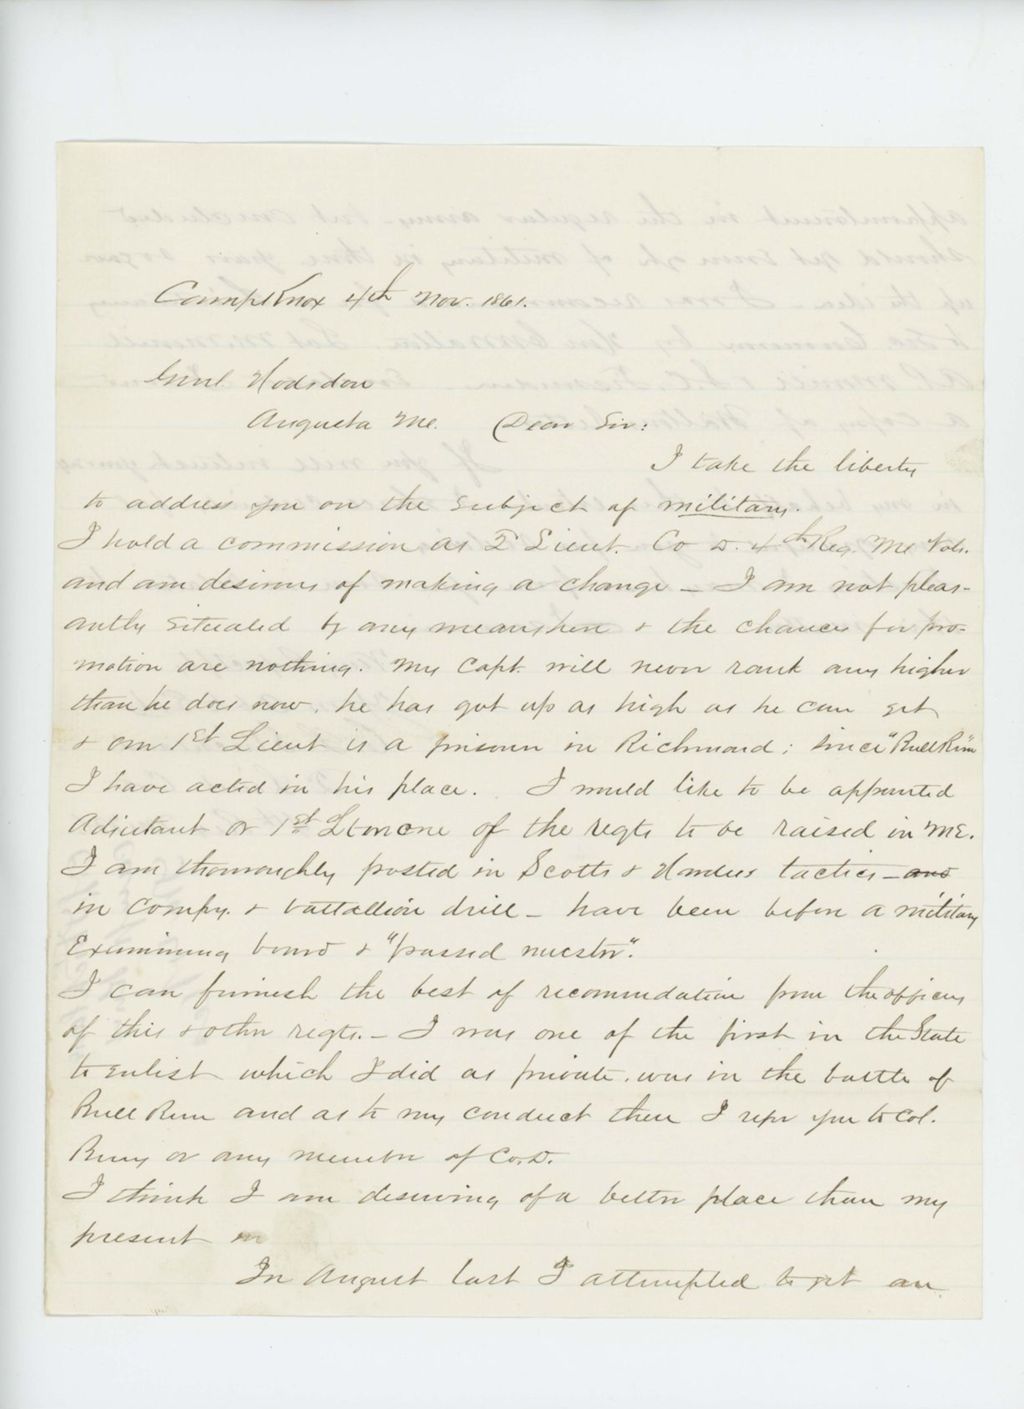 Camp Knox 4th Nov. 1861.
Genl. Hodsdon
Augusta Me. Dear Sir:
I take the liberty
to address you on the subject of military.
I hold a commission as 2d Lieut. Co D. 4th Reg. Me Vols.
and am desirous of making a change — I am not pleas-
antly situated by any means here & the chances for pro-
motion are nothing. My Capt. will never rank any higher
than he does now, he has got up as high as he can get
& our 1st Lieut is a prisoner in Richmond; since "Bull Run"
I have acted in his place. I would like to be appointed
Adjutant or 1st Lt on one of the regts to be raised in ME.
I am thoroughly posted in Scotts & Hardees tactics — and
in Compy. & battallion drill — have been before a military
Examining board & "passed muster".
I can furnish the best of recommendation from the officers
of this & other regts. — I was one of the first in the State
to enlist which I did as private, was in the battle of
Bull Run and as to my conduct there I refer you to Col.
Berry or any member of Co. D.
I think I am deserving of a better place than my
present
In August last I attempted to get an